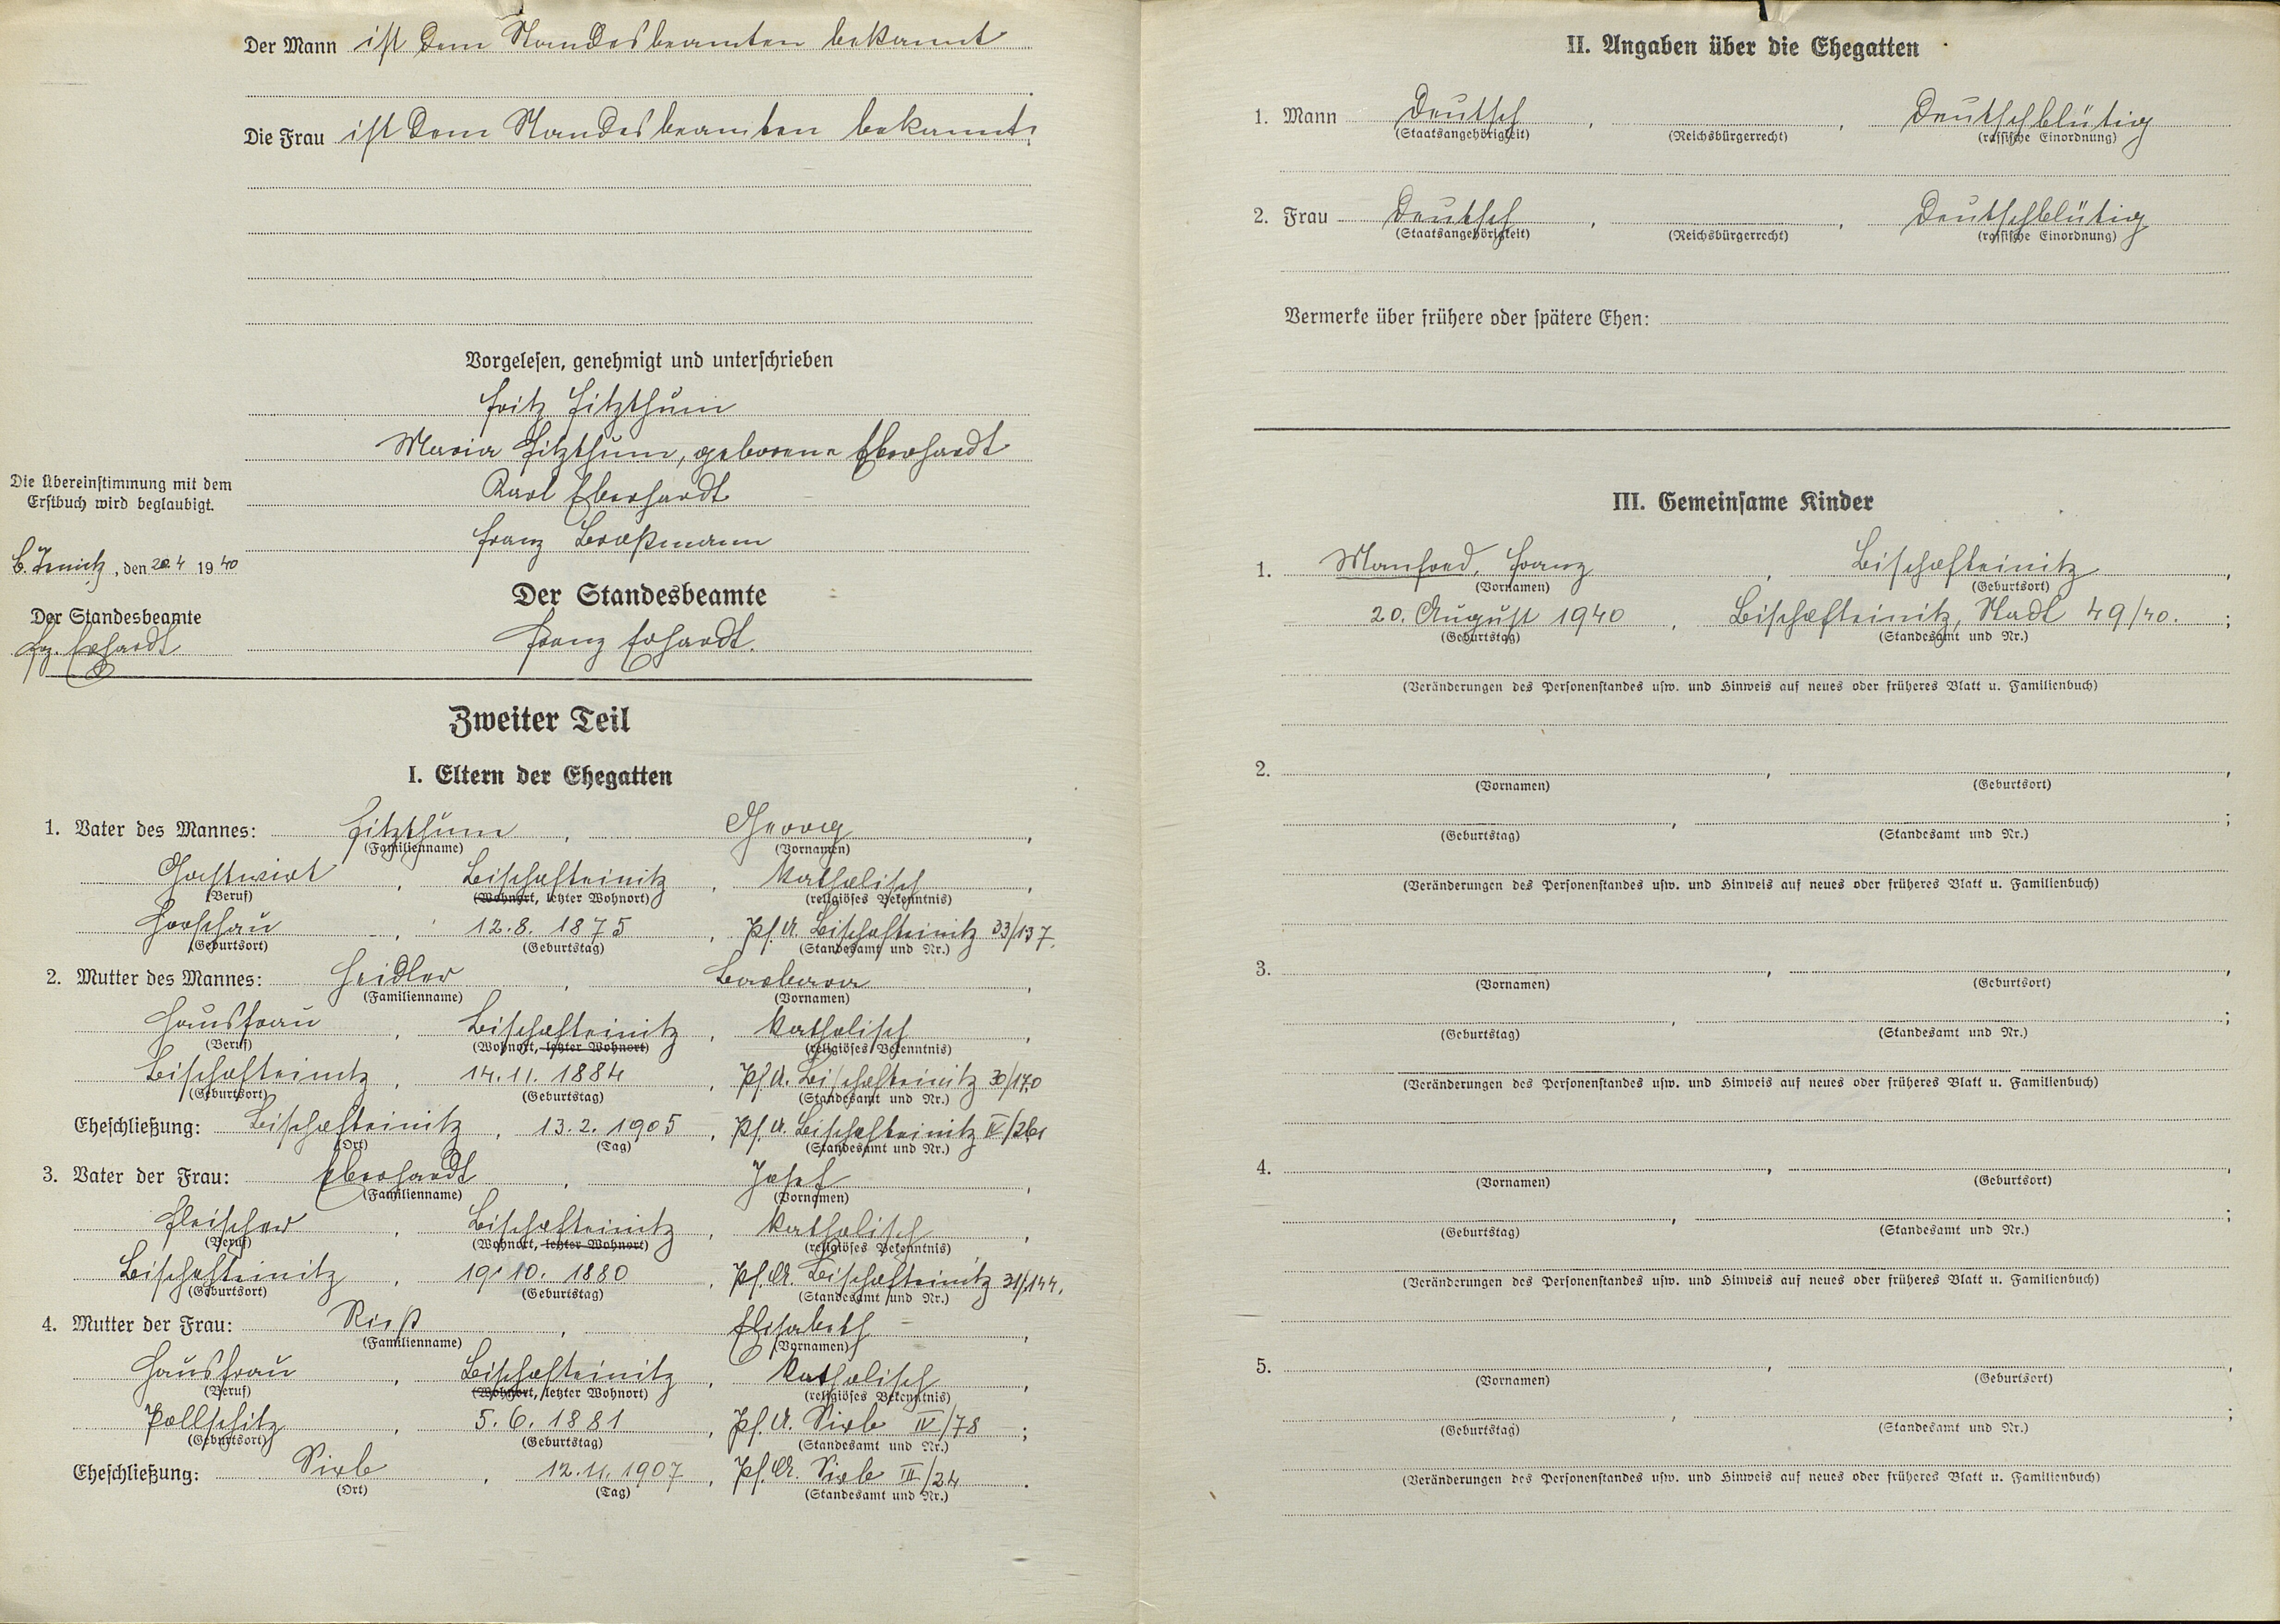 Der Mann ist dem Standesbeamten bekannt
Die Frau ist dem Standesbeamten bekannt.
Vorgelesen, genehmigt und unterschrieben
Fritz Fitzthum
Maria Fitzthum, geborene Eberhardt
Karl Eberhardt
Franz
Die Übereinstimmung mit dem
Erstbuch wird beglaubigt.
, den 20.4 1940
Der Standesbeamte
Fz. Erhardt
Der Standesbeamte
Franz Erhardt.
Zweiter Teil
I. Eltern der Ehegatten
1. Vater des Mannes: Fitzthum, Georg,
(Familienname) (Vornamen)
Gastwirt, Bischofteinitz, katholisch,
(Beruf) (Wohnort, letzter Wohnort) (religiöses Bekenntnis)
Horschau, 12.8.1875, Pf.A. Bischofteinitz 33/137.
(Geburtsort) (Geburtstag) (Standesamt und Nr.)
2. Mutter des Mannes: Heidler, Barbara,
(Familienname) (Vornamen)
Hausfrau, Bischofteinitz, katholisch,
(Beruf) (Wohnort, letzter Wohnort) (religiöses Bekenntnis)
Bischofteinitz, 14.11.1884, Pf.A. Bischofteinitz 30/170
(Geburtsort) (Geburtstag) (Standesamt und Nr.)
Eheschließung: Bischofteinitz, 13.2.1905, Pf.A. Bischofteinitz IV/261
(Ort) (Tag) (Standesamt und Nr.)
3. Vater der Frau: Eberhardt, Josef,
(Familienname) (Vornamen)
Fleischer, Bischofteinitz, katholisch,
(Beruf) (Wohnort, letzter Wohnort) (religiöses Bekenntnis)
Bischofteinitz, 19.10.1880, Pf.A. Bischofteinitz 31/144.
(Geburtsort) (Geburtstag) (Standesamt und Nr.)
4. Mutter der Frau: Rieß, Elisabeth,
(Familienname) (Vornamen)
Hausfrau, Bischofteinitz, katholisch,
(Beruf) (Wohnort, letzter Wohnort) (religiöses Bekenntnis)
Pollschitz, 5.6.1881, Pf.A. Sirb IV/78;
(Geburtsort) (Geburtstag) (Standesamt und Nr.)
Eheschließung: Sirb, 12.11.1907, Pf.A. Sirb III/24.
(Ort) (Tag) (Standesamt und Nr.)
II. Angaben über die Ehegatten
1. Mann Deutsch, , Deutschblütig
(Staatsangehörigkeit) (Reichsbürgerrecht) (rassische Einordnung)
2. Frau Deutsch, , Deutschblütig
(Staatsangehörigkeit) (Reichsbürgerrecht) (rassische Einordnung)
Vermerke über frühere oder spätere Ehen:
III. Gemeinsame Kinder
1. Manfred, Franz, Bischofteinitz,
(Vornamen) (Geburtsort)
20. August 1940, Bischofteinitz, Stadt 49/40.;
(Geburtstag) (Standesamt und Nr.)
(Veränderungen des Personenstandes usw. und Hinweis auf neues oder früheres Blatt u. Familienbuch)
2. , ,
(Vornamen) (Geburtsort)
, ;
(Geburtstag) (Standesamt und Nr.)
(Veränderungen des Personenstandes usw. und Hinweis auf neues oder früheres Blatt u. Familienbuch)
3. , ,
(Vornamen) (Geburtsort)
, ;
(Geburtstag) (Standesamt und Nr.)
(Veränderungen des Personenstandes usw. und Hinweis auf neues oder früheres Blatt u. Familienbuch)
4. , ,
(Vornamen) (Geburtsort)
, ;
(Geburtstag) (Standesamt und Nr.)
(Veränderungen des Personenstandes usw. und Hinweis auf neues oder früheres Blatt u. Familienbuch)
5. , ,
(Vornamen) (Geburtsort)
, ;
(Geburtstag) (Standesamt und Nr.)
(Veränderungen des Personenstandes usw. und Hinweis auf neues oder früheres Blatt u. Familienbuch)